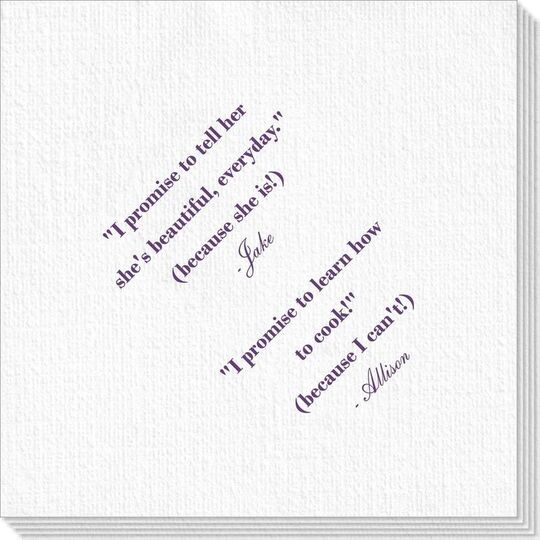 "I promise to tell her
she's beautiful, everyday."
(because she is!)
-Jake
"I promise to learn how
to cook!"
(because I can't!)
- Allison